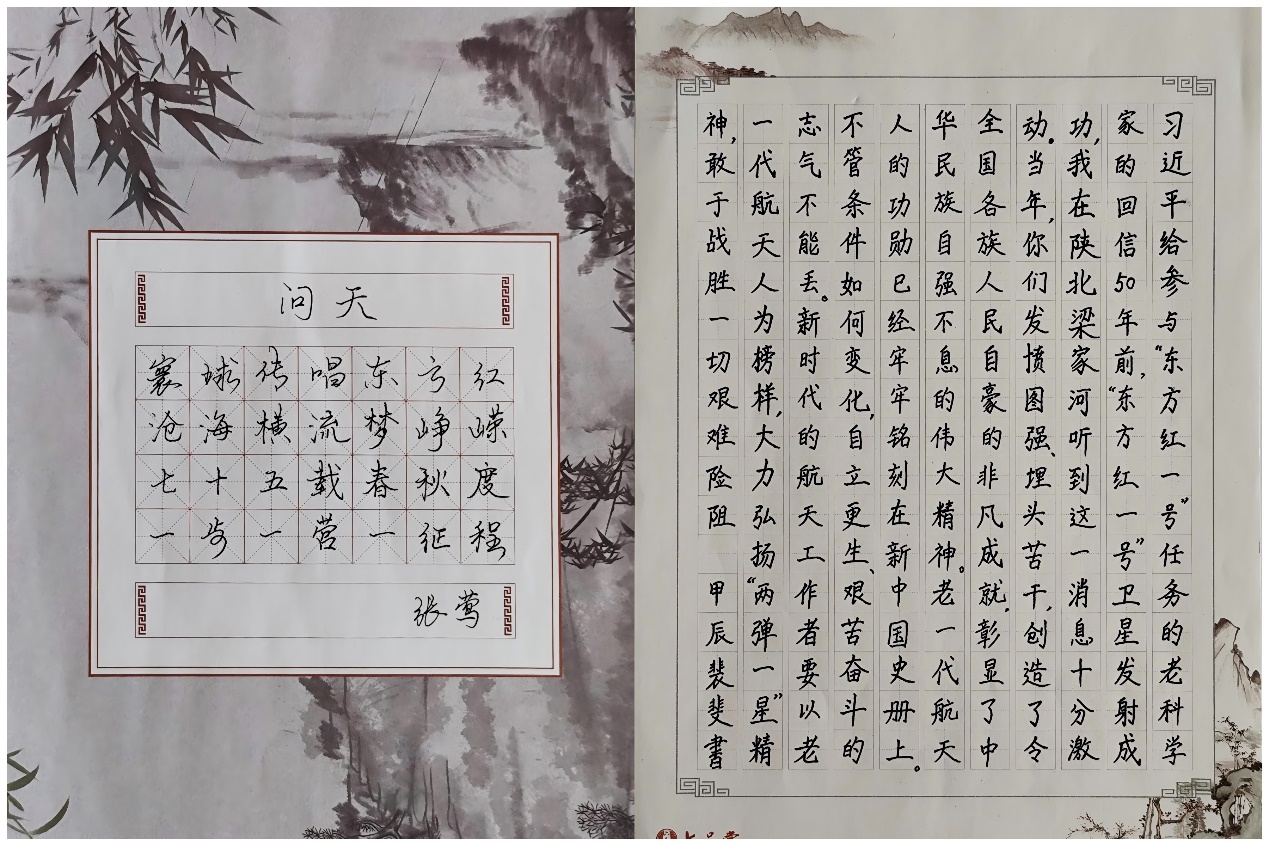 问天
寰球传唱东方红
沧海横流梦峥嵘
七十五载春秋度
一步一营一征程
张莺
习近平给参与“东方红一号”任务的老科学
家的回信50年前，“东方红一号”卫星发射成
功，我在陕北梁家河听到这一消息十分激
动。当年，你们发愤图强、埋头苦干，创造了令
全国各族人民自豪的非凡成就，彰显了中
华民族自强不息的伟大精神。老一代航天
人的功勋已经牢牢铭刻在新中国史册上。
不管条件如何变化，自立更生、艰苦奋斗的
志气不能丢。新时代的航天工作者要以老
一代航天人为榜样，大力弘扬“两弹一星”精
神，敢于战胜一切艰难险阻 甲辰裴斐書